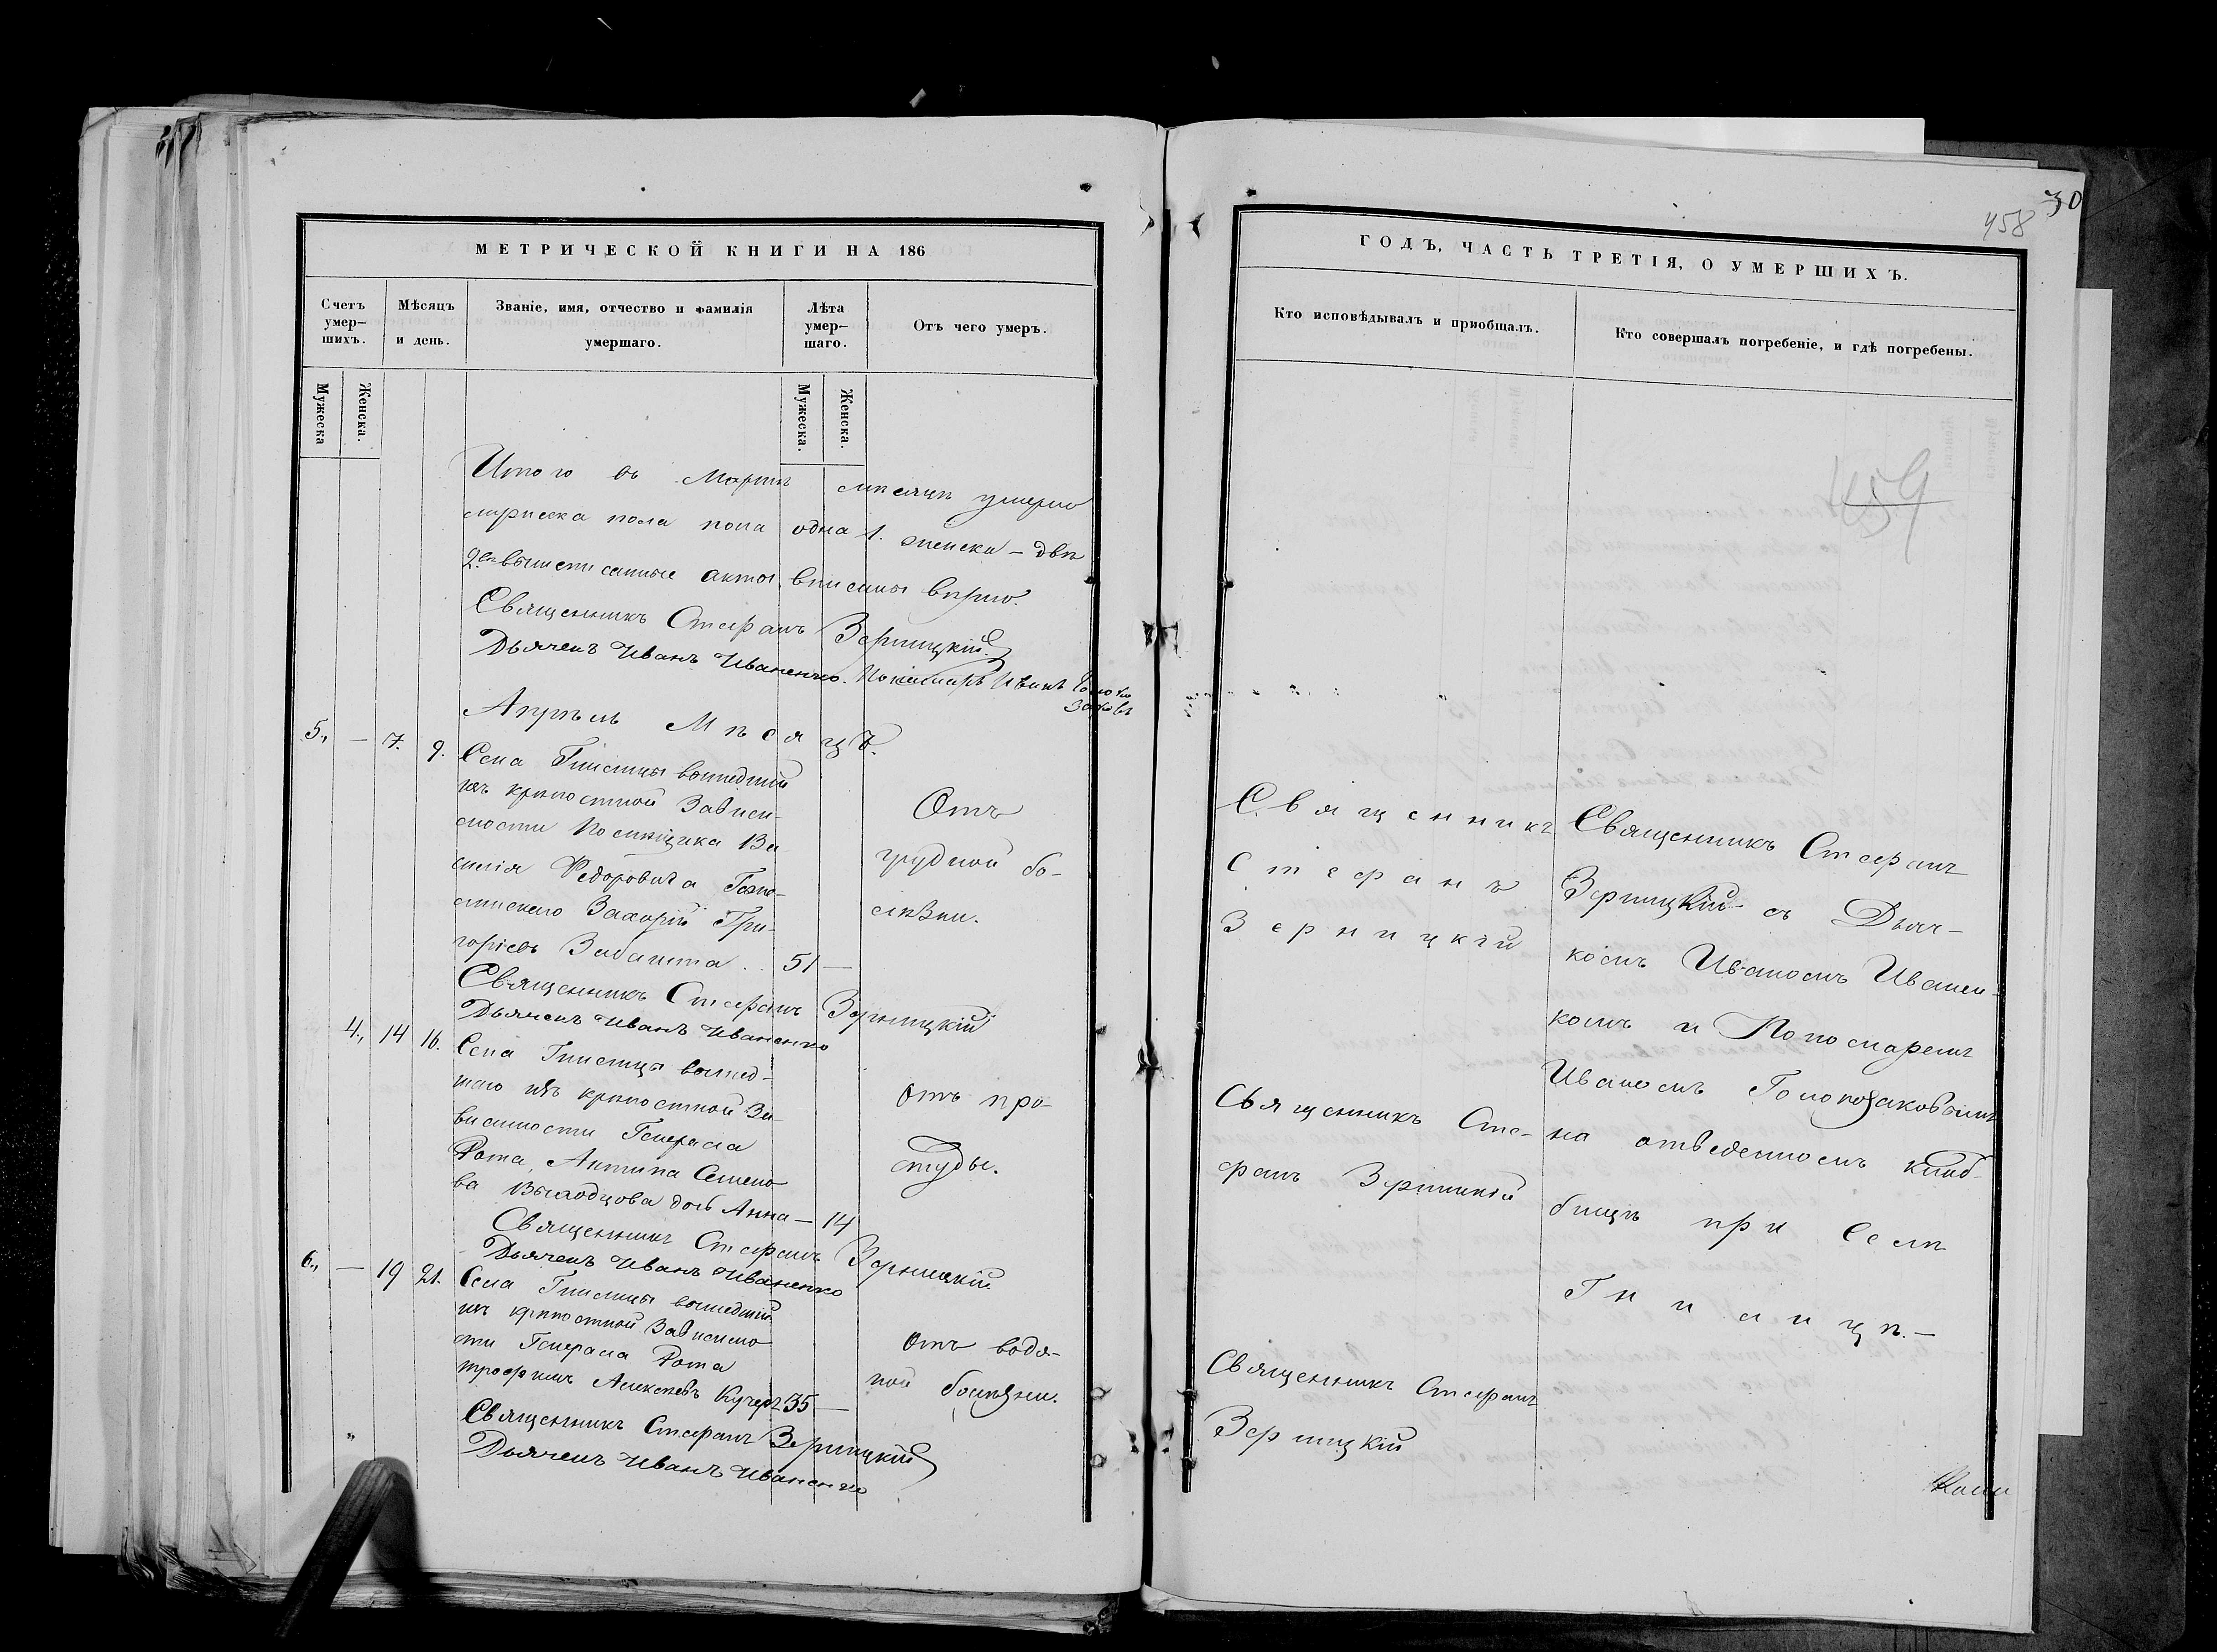 МЕТРИЧЕСКОЙ КНИГИ НА 186
Счетъ умер-
шихъ.
Мѣсяцъ
и день.
Званіе, имя, отчество и фамилія
умершаго.
Лѣта
умер-
шаго.
Отъ чего умеръ.
Мужеска
Женска.
Мужеска.
Женска.
Итого въ Мартѣ мѣсяцѣ умерло
мужеска пола одна 1. женска – двѣ
2. акты, вписаны вѣрно.
Священникъ Стефанъ Зерницкій
Дьячекъ Иванъ Иваненко. Пономарь Иванъ
Апрѣль Мѣсяцъ.
5., — 7. 9. Села Гнилицы вышедшій
изъ крѣпостной Зависи-
мости Помѣщика Ва-
силія Федоровича
Захарій Гри-
горіевъ Забашта .. 51 —
Отъ
грудной бо-
лѣзни.
Священникъ Стефанъ Зерницкій
Дьячекъ Иванъ Иваненко
4., 14 16. Села Гнилицы вышед-
шаго изъ крѣпостной За-
висимости Генерала
Рота, Антипа Семено-
ва Выходцова дочь Анна — 14
Отъ про-
студы.
Священникъ Стефанъ Зерницкій
Дьячекъ Иванъ Иваненко
6., — 19 21. Села Гнилицы вышедшій
изъ крѣпостной Зависимо
сти Генерала Рота
Трофимъ Алексѣевъ Кучеръ 35 —
Отъ водя-
ной болѣзни.
Священникъ Стефанъ Зерницкій
Дьячекъ Иванъ Иваненко
458
30
ГОДЪ, ЧАСТЬ ТРЕТІЯ, О УМЕРШИХЪ.
Кто исповѣдывалъ и пріобщалъ.
Кто совершалъ погребеніе, и гдѣ погребены.
459
Священникъ
Стефанъ
Зерницкій
Священникъ Сте-
фанъ Зерницкій
Священникъ Стефанъ
Зерницкій
Священникъ Стефанъ
Зерницкій съ Дьяч-
комъ Иваномъ Иванен-
комъ и Пономаремъ
Иваномъ Голопозаковымъ
на отведенномъ клад-
бищѣ при Селѣ
Гнилицѣ.—